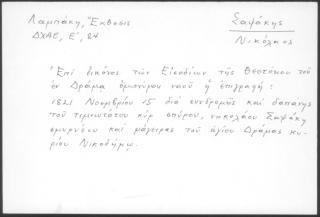 Λαμπάκη, "Έκθεσις
ΔΧΑΕ, Ε', 84
Σαφάκης
Νικόλαος
Ἐπί εἰκόνος τῶν Εἰσοδίων τῆς Θεοτόκου τοῦ
ἐν Δράμα ὁμωνύμου ναοῦ ἡ ἐπιγραφή:
1821 Νοεμβρίου 15 διά συνδρομῆς καί δαπάνης
τοῦ τιμιωτάτου κύρ σπύρου, νηκολάου Σαφάκη
σμυρνέου καί μάγειρας τοῦ ἁγίου Δράμας κυ-
ρίου Νικοδήμῳ.